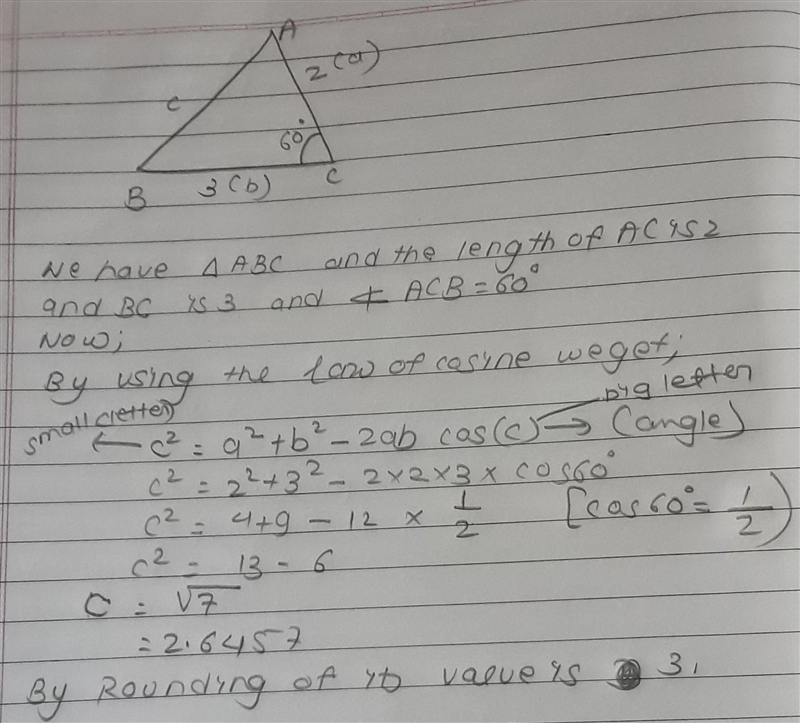 A
2 (a)
c
60°
B
3 (b)
C
We have △ ABC and the length of AC is 2
and BC is 3 and ∠ ACB = 60°
Now;
By using the law of cosine we get;
small c letter
big letter
← c² = a² + b² - 2ab cos(c) → (angle)
c² = 2² + 3² - 2×2×3× cos60°
c² = 4+9 - 12 × 1/2 [cos60° = 1/2)
c² = 13 - 6
C = √7
= 2.6457
By Rounding of its value is 3.